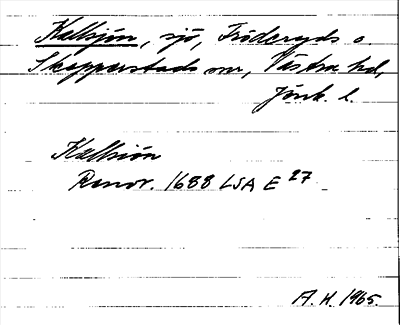 Kallsjön, sjö, Fröderyds o.
Skepperstads snr, Västra hd,
Jönk. l.
Kallsiön
Renov. 1688 LSA E 27
A. H. 1965.